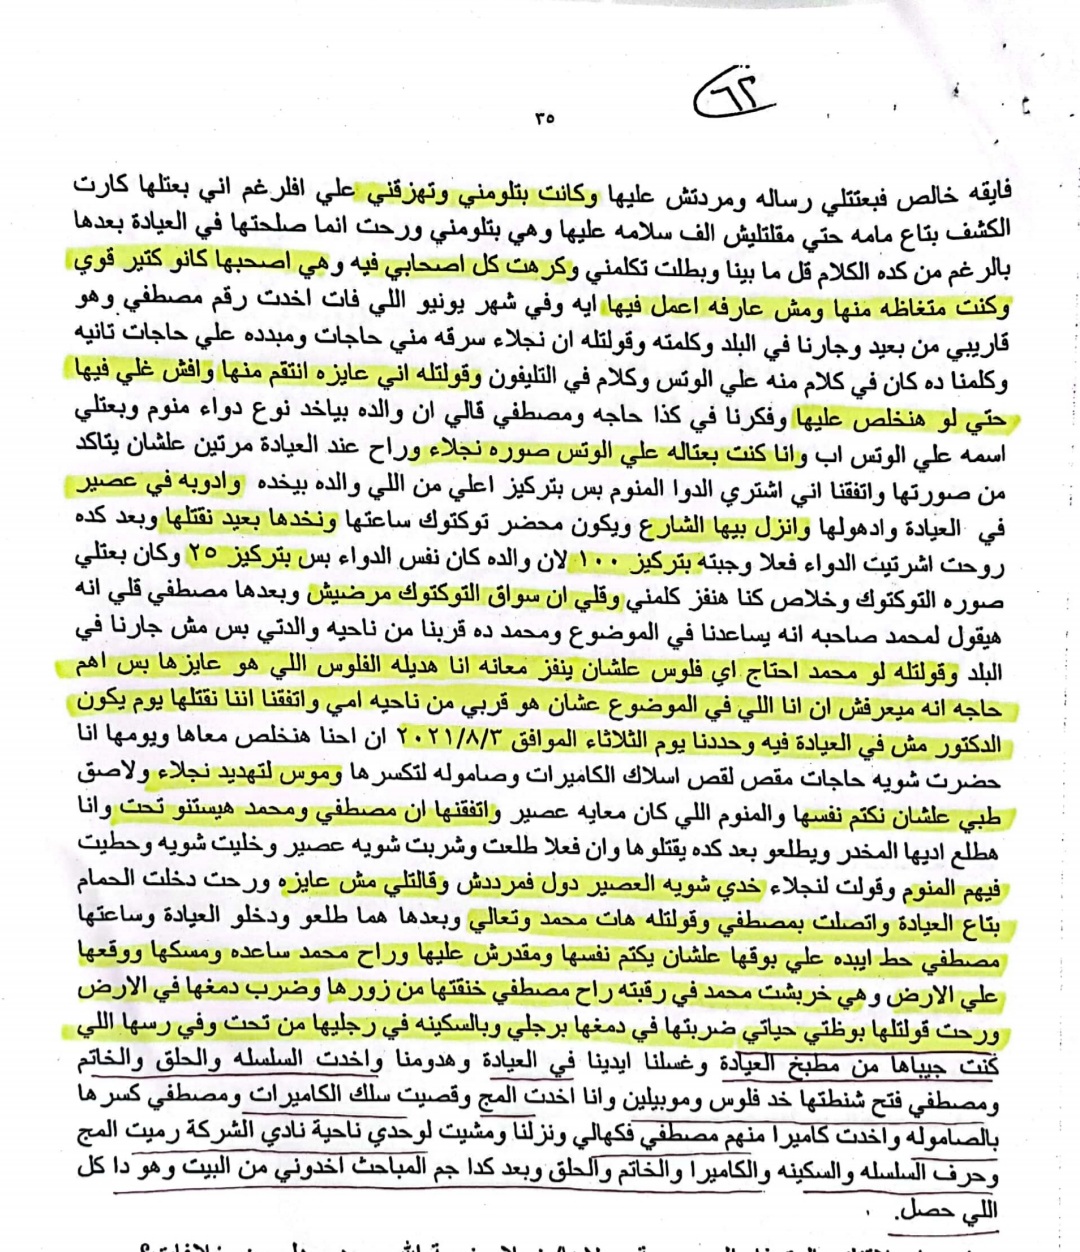 ٦٢
٣٥
فايقه خالص فبعتتلي رساله ومردتش عليها وكانت بتلومني وتهزقني علي افلرغم اني بعتلها كارت
الكشف بتاع مامه حتي مقلتليش الف سلامه عليها وهي بتلومني ورحت انما صلحتها في العيادة بعدها
بالرغم من كده الكلام قل ما بينا وبطلت تكلمني وكرهت كل اصحابي فيه وهي اصحبها كانو كتير قوي
وكنت متغاظه منها ومش عارفه اعمل فيها ايه وفي شهر يونيو اللي فات اخدت رقم مصطفي وهو
قاريبي من بعيد وجارنا في البلد وكلمته وقولتله ان نجلاء سرقه مني حاجات ومبدده علي حاجات تانيه
وكلمنا ده كان في كلام منه علي الوتس وكلام في التليفون وقولتله اني عايزه انتقم منها وافش غلي فيها
حتي لو هنخلص عليها وفكرنا في كذا حاجه ومصطفي قالي ان والده بياخد نوع دواء منوم وبعتلي
اسمه علي الوتس اب وانا كنت بعتاله علي الوتس صوره نجلاء وراح عند العيادة مرتين علشان يتاكد
من صورتها واتفقنا اني اشتري الدوا المنوم بس بتركيز اعلي من اللي والده بيخده وادوبه في عصير
في العيادة وادهولها وانزل بيها الشارع ويكون محضر توكتوك ساعتها ونخدها بعيد نقتلها وبعد كده
روحت اشرتيت الدواء فعلا وجبته بتركيز ١٠٠ لان والده كان نفس الدواء بس بتركيز ٢٥ وكان بعتلي
صوره التوكتوك وخلاص كنا هنفز كلمني وقلي ان سواق التوكتوك مرضيش وبعدها مصطفي قلي انه
هيقول لمحمد صاحبه انه يساعدنا في الموضوع ومحمد ده قربنا من ناحيه والدتي بس مش جارنا في
البلد وقولتله لو محمد احتاج اي فلوس علشان ينفز معانه انا هديله الفلوس اللي هو عايزها بس اهم
حاجه انه ميعرفش ان انا اللي في الموضوع عشان هو قربي من ناحيه امي واتفقنا اننا نقتلها يوم يكون
الدكتور مش في العيادة فيه وحددنا يوم الثلاثاء الموافق ٢٠٢١/٨/٣ ان احنا هنخلص معاها ويومها انا
حضرت شويه حاجات مقص لقص اسلاك الكاميرات وصاموله لتكسرها وموس لتهديد نجلاء ولاصق
طبي علشان نكتم نفسها والمنوم اللي كان معايه عصير واتفقنها ان مصطفي ومحمد هيستنو تحت وانا
هطلع اديها المخدر ويطلعو بعد كده يقتلوها وان فعلا طلعت وشربت شويه عصير وخليت شويه وحطيت
فيهم المنوم وقولت لنجلاء خدي شويه العصير دول فمرددش وقالتلي مش عايزه ورحت دخلت الحمام
بتاع العيادة واتصلت بمصطفي وقولتله هات محمد وتعالي وبعدها هما طلعو ودخلو العيادة وساعتها
مصطفي حط ايبده علي بوقها علشان يكتم نفسها ومقدرش عليها وراح محمد ساعده ومسكها ووقعها
علي الارض وهي خربشت محمد في رقبته راح مصطفي خنقتها من زورها وضرب دمغها في الارض
ورحت قولتلها بوظتي حياتي ضربتها في دمغها برجلي وبالسكينه في رجليها من تحت وفي رسها اللي
كنت جيباها من مطبخ العيادة وغسلنا ايدينا في العيادة وهدومنا واخدت السلسله والحلق والخاتم
ومصطفي فتح شنطتها خد فلوس وموبيلين وانا اخدت المج وقصيت سلك الكاميرات ومصطفي كسرها
بالصاموله واخدت كاميرا منهم مصطفي فكهالي ونزلنا ومشيت لوحدي ناحية نادي الشركة رميت المج
وحرف السلسله والسكينه والكاميرا والخاتم والحلق وبعد كدا جم المباحث اخدوني من البيت وهو دا كل
اللي حصل.